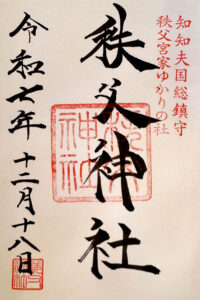 知知夫国総鎮守
秩父宮家ゆかりの社
秩父神社
令和七年 十二月十八日